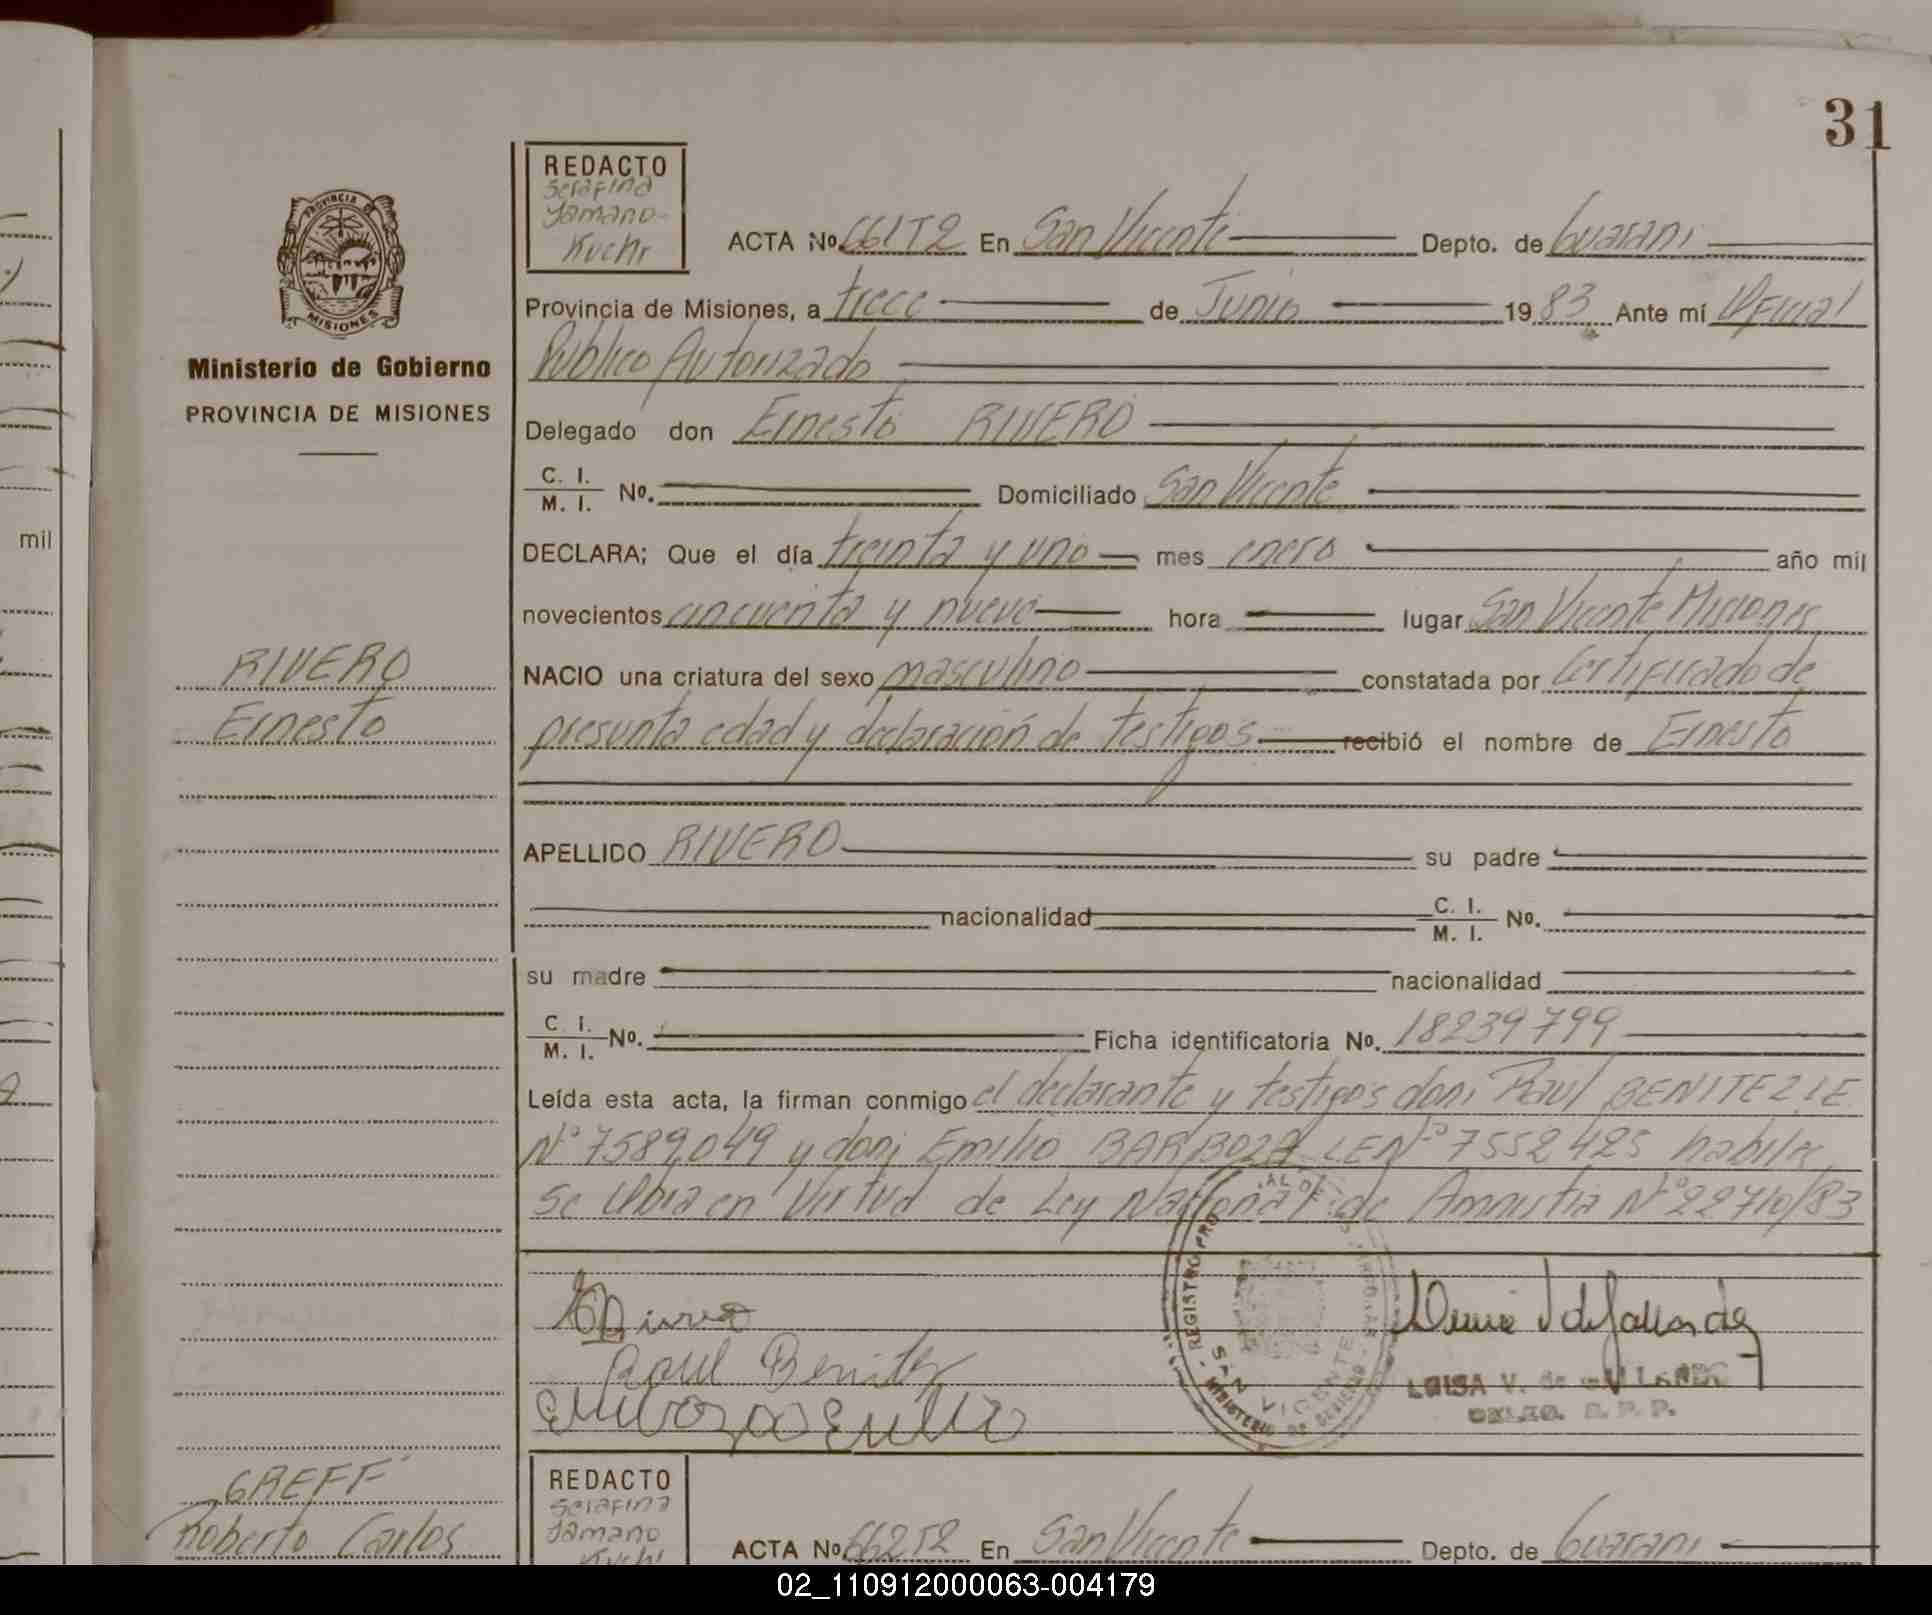 31
REDACTO
Serafina
Jamano-
Kuchi
ACTA No. 661T2 En San Vicente Depto. de Guarani
PROVINCIA DE
MISIONES
Provincia de Misiones, a trece de Junio 1983 Ante mí Oficial
Ministerio de Gobierno
Público Autorizado
PROVINCIA DE MISIONES
Delegado don Ernesto RIVERO
C. I.
M. I. No. Domiciliado San Vicente
mil
DECLARA; Que el día treinta y uno mes enero año mil
novecientos cincuenta y nueve hora lugar San Vicente Misiones
RIVERO
NACIO una criatura del sexo masculino constatada por Certificado de
Ernesto
presunta edad y declaración de testigos recibió el nombre de Ernesto
APELLIDO RIVERO su padre
nacionalidad C. I.
M. I. No.
su madre nacionalidad
C. I.
M. I. No. Ficha identificatoria No. 18239799
Leída esta acta, la firman conmigo el declarante y testigos don: Raul BENITEZ L.E.
Nº 7589.049 y don: Emilio BARBOZA LE Nº 7552425 habiles
Se labra en Virtud de Ley Nacional de Amnistia Nº 22710/83
Raul Benitez
REGISTRO PRO
SAN VICENTE
MINISTERIO DE GOBIERNO
LUISA V. de
GREFF
Roberto Carlos
REDACTO
Serafina
Jamano
Kuchi
ACTA No. 662T2 En San Vicente Depto. de Guarani
02_110912000063-004179